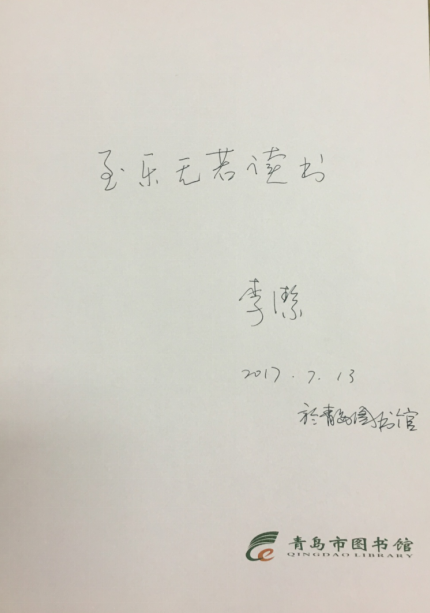 至乐无若读书
李潔
2017.7.13
於青岛图书馆
青岛市图书馆
QINGDAO LIBRARY